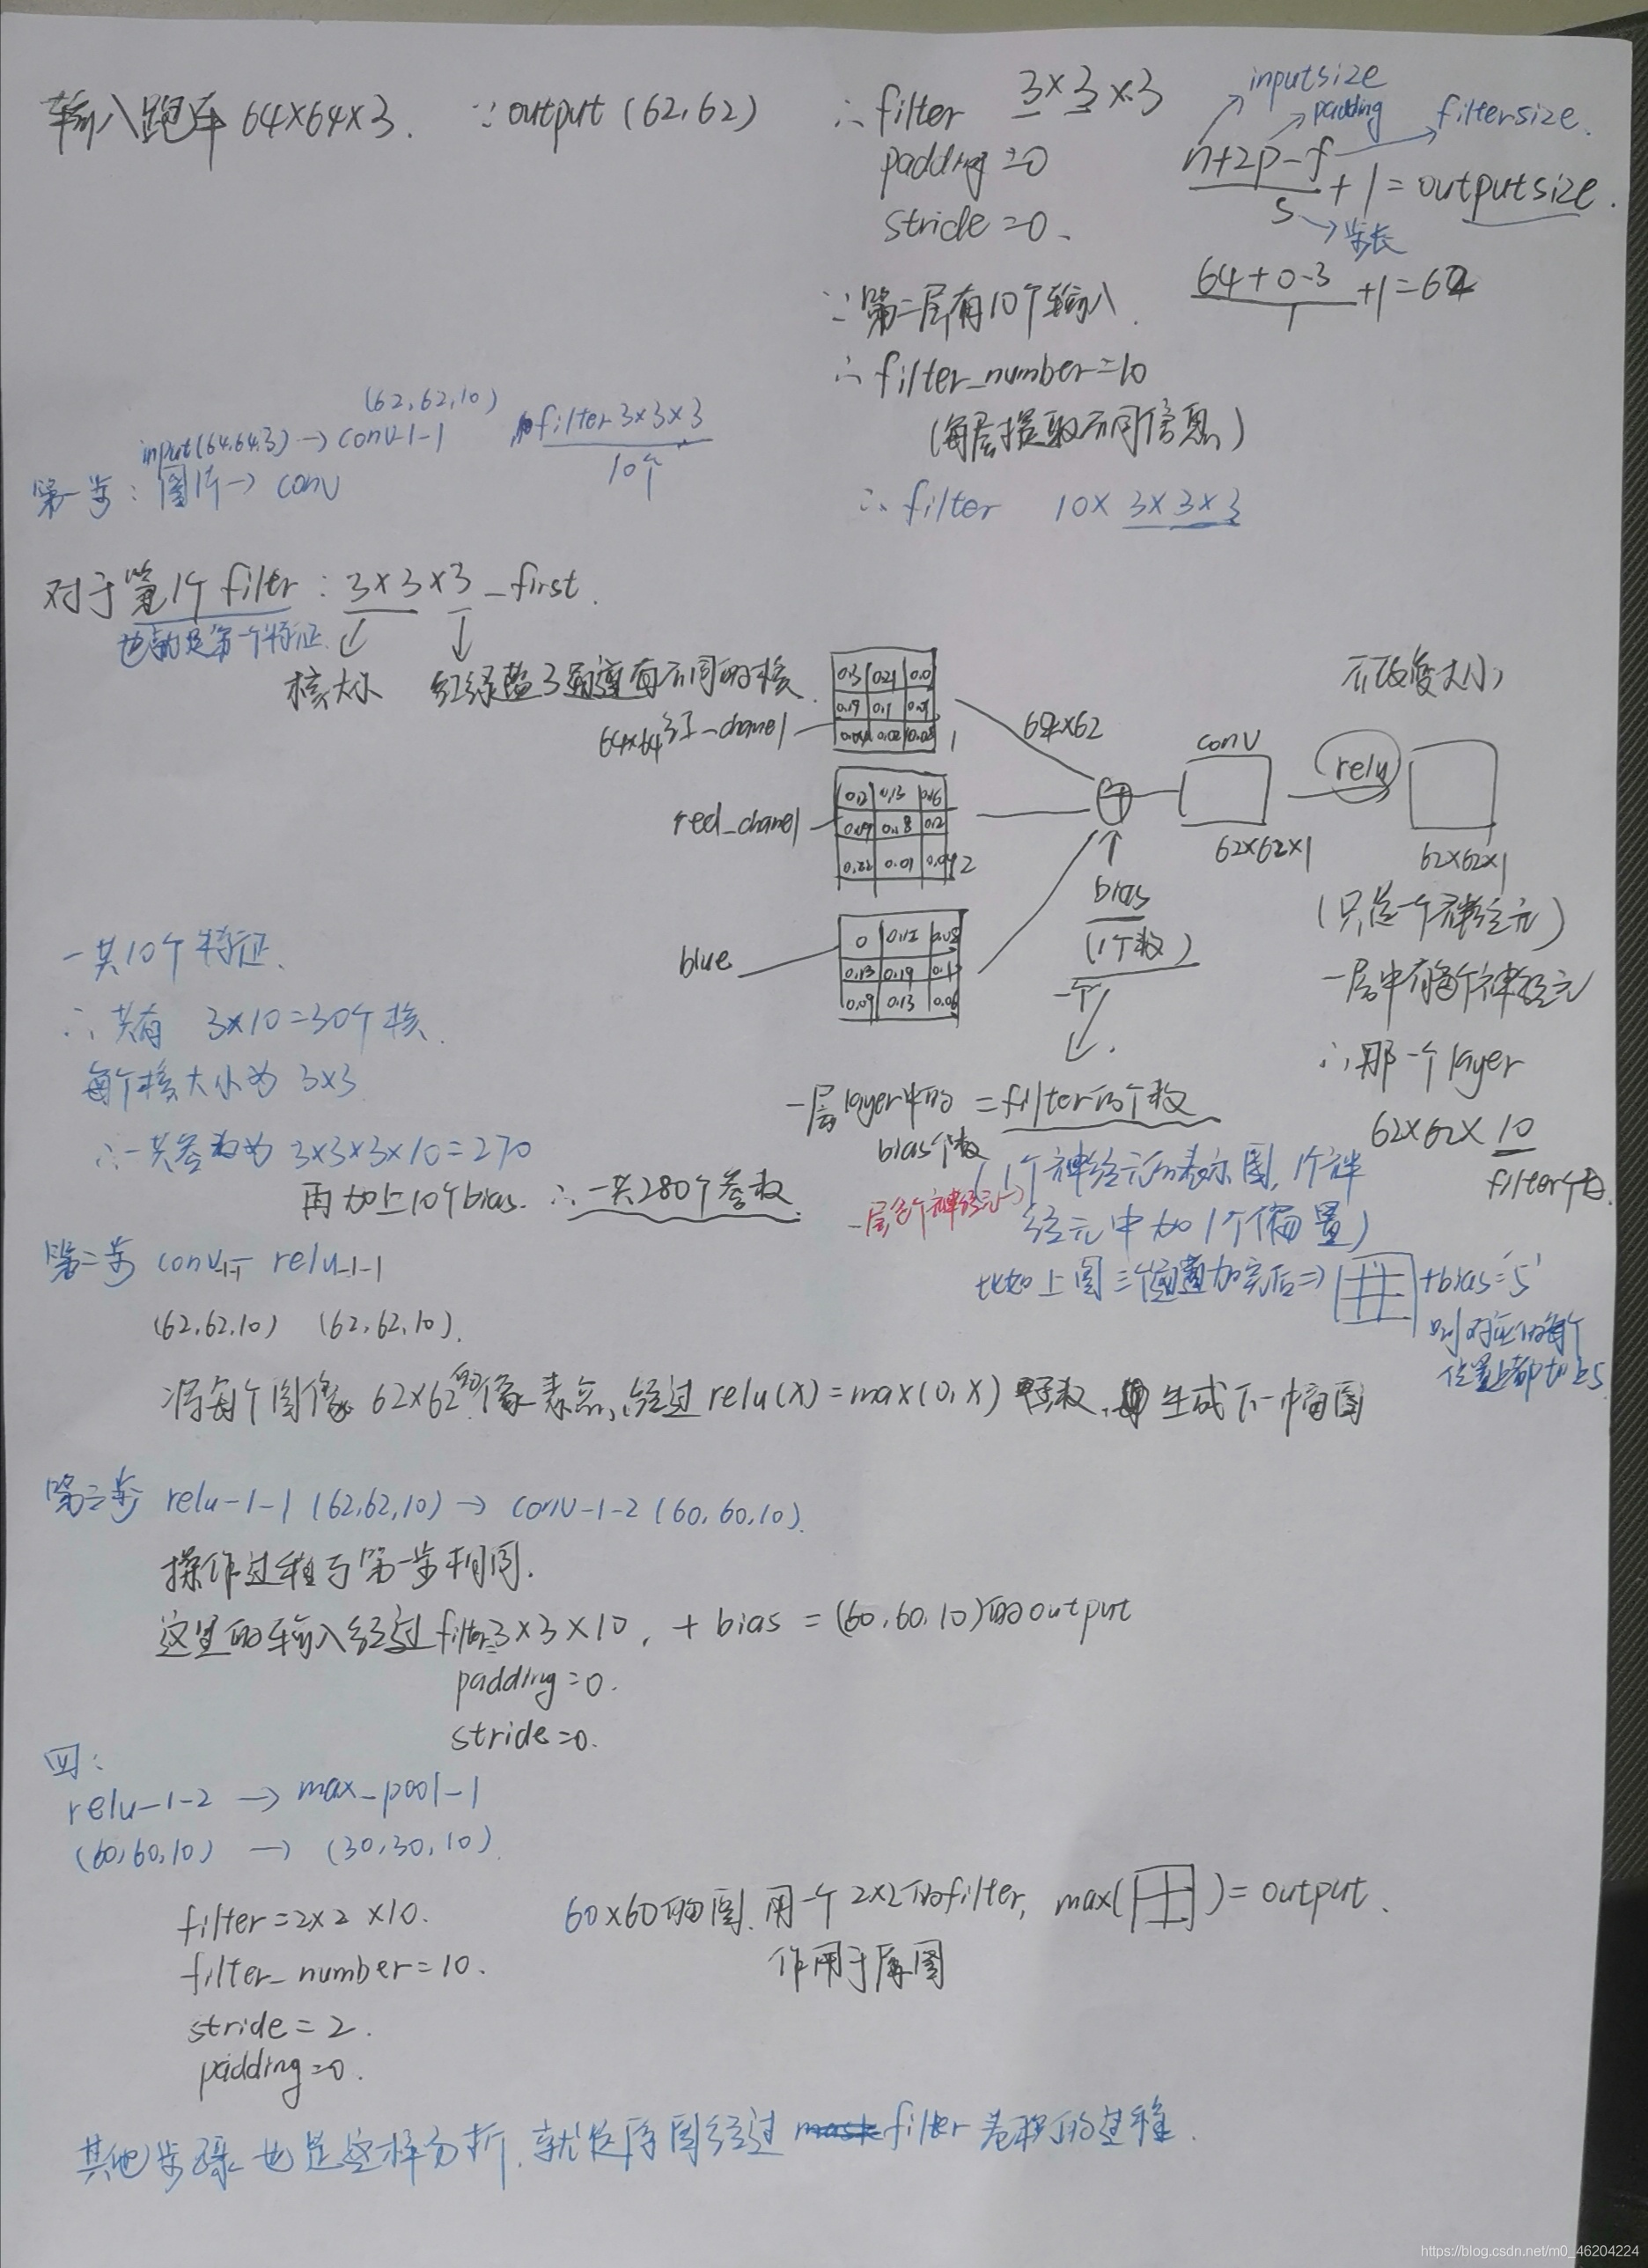 输入跑车 64×64×3. ∵ output (62,62)
∴ filter 3×3×3
padding=0
stride=0.
inputsize
padding
filtersize.
n+2p-f
s
+1=outputsize.
步长
64+0-3
1
+1=62
∵第二层有10个输入.
∴ filter_number=10
(每层提取不同信息)
∴ filter 10×3×3×3
(62,62,10)
input(64,64,3)→conv-1-1
filter 3×3×3
10个
第一步: 图片→conv
对于第1个filter: 3×3×3_first.
也就是第一个特征.
核大小
红绿蓝3通道有不同的核.
64×64 红_chanel
0.3 0.21 0.0
0.19 0.1
1
62×62
不改变大小
conv
relu
62×62×1
62×62×1
reel_chanel
0.13 0.16
0.09 0.18 0.12
0.22 0.01 0.04
2
bias
(1个数)
一个
(只是一个神经元)
blue
0 0.12 0.08
0.13 0.19
0.09 0.13 0.06
一层中有每个神经元
∴那一个layer
62×62×10
filter个数
一共10个特征.
∴共有 3×10=30个核.
每个核大小为 3×3
∴一共参数为 3×3×3×10=270
再加上10个bias. ∴一共280个参数.
一层layer中的
bias个数
=filter的个数
(1个神经元的表示图, 1个神
经元中加1个偏置)
一层多个神经元
比如上图三个通道加完后⇒ +bias='5'
则对应的每个
位置上都加上5.
第二步 conv-1-1 relu-1-1
(62,62,10) (62,62,10).
将每个图像 62×62的像素点,经过 relu(x)=max(0,x) 生成下一幅图
第三步 relu-1-1 (62,62,10)→conv-1-2 (60,60,10).
操作过程与第一步相同.
这里的输入经过filter=3×3×10, + bias = (60,60,10)的output
padding=0.
stride=0.
四:
relu-1-2→max_pool-1
(60,60,10)→(30,30,10).
filter=2×2×10.
filter_number=10.
stride=2.
padding=0.
60×60的图. 用一个2×2的filter, max( )=output.
作用于原图
其他步骤也是这样分析. 就是原图经过 filter 卷积的过程.
https://blog.csdn.net/m0_46204224